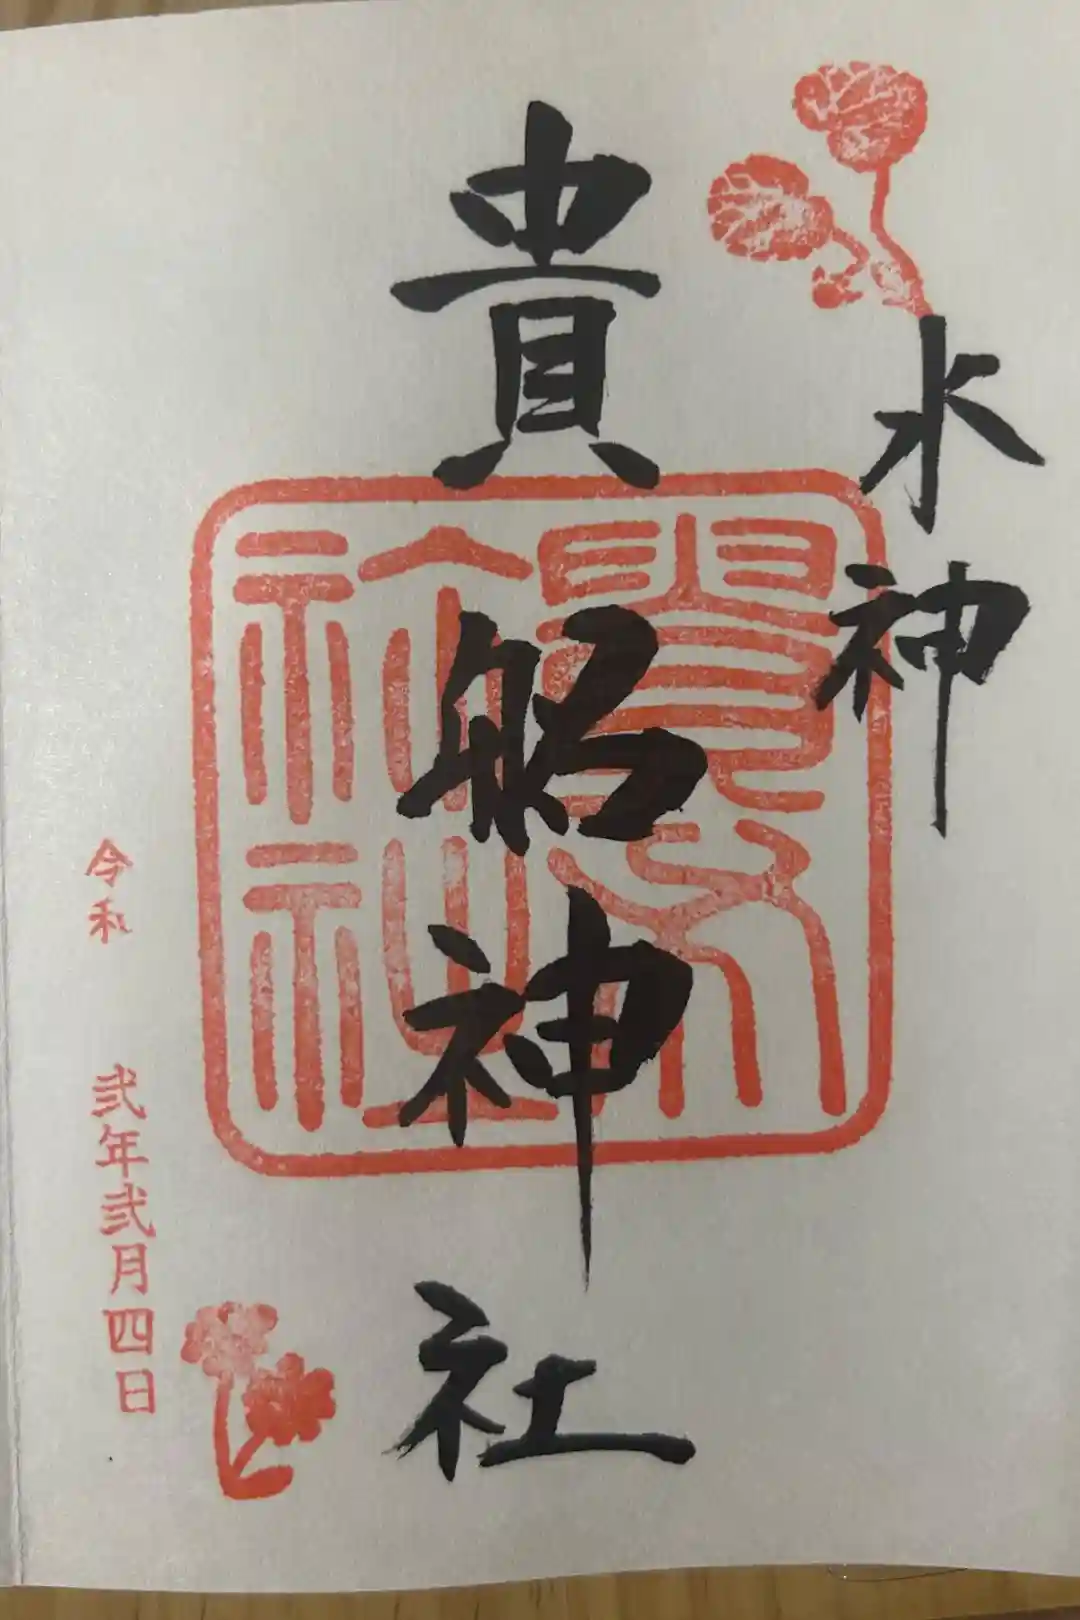 水神
貴船神社
貴布祢社
令和 弐年弐月四日